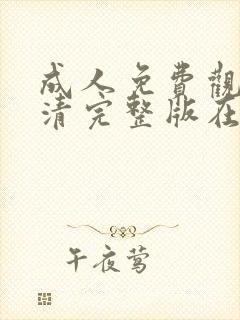 成人免費觀
清完整版在
午夜莺